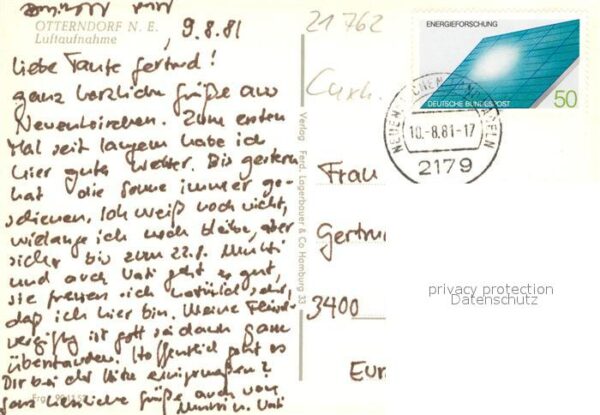 OTTERNDORF N. E.
Luftaufnahme
9.8.81
Liebe Tante Gertrud!
ganz herzliche Grüße aus
Neuenkirchen. Zum ersten
Mal seit langem habe ich
hier gutes Wetter. Bis gestern
hat die Sonne immer ge-
schienen. Ich weiß noch nicht,
wielange ich noch bleibe, aber
sicher bis zum 22.8. Mutti
und auch Vati geht es gut,
sie freuen sich natürlich sehr,
daß ich hier bin. Meine
vergiftg ist Gott sei dank ganz
überstanden. Hoffentlich geht es
Dir bei der Hitze einigermaßen?
Ganz herzliche Grüße auch von
Mutti u. Vati
Verlag Ferd. Lagerbauer & Co Hamburg 33
21762
Cuxh.
ENERGIEFORSCHUNG
DEUTSCHE BUNDESPOST
50
10.-8.81-17
2179
Frau
Gertru
3400
privacy protection
Datenschutz